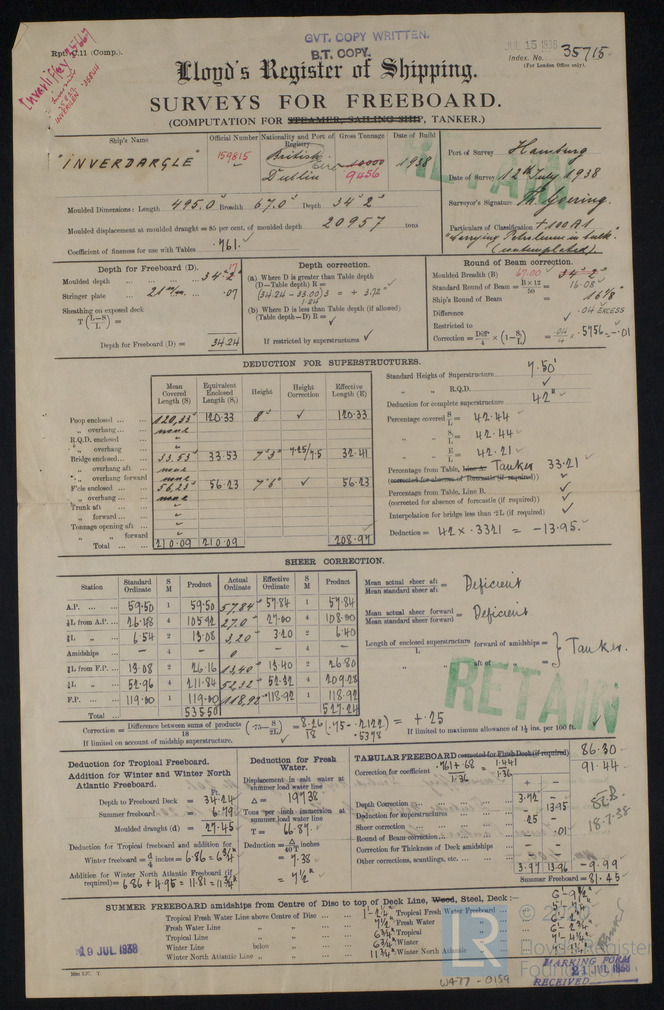 GVT. COPY WRITTEN.
B.T. COPY.
JUL 15 1938
Rpt. C.11 (Comp.).
Index. No. 35715
(For London Office only).
Lloyd's Register of Shipping.
SURVEYS FOR FREEBOARD.
(COMPUTATION FOR STEAMER, SAILING SHIP, TANKER.)
RETAIN
Ship's Name
Official Number
Nationality and Port of Registry
Gross Tonnage
Date of Build
"INVERDARGLE"
159815
British
Dublin
10000
9456
1938
Port of Survey Hamburg
Date of Survey 12th July 1938
Surveyor's Signature
Particulars of Classification +100A1
"Carrying Petroleum in bulk".
(contemplated)
Moulded Dimensions: Length 495.0 Breadth 67.0 Depth 34' 2"
Moulded displacement at moulded draught = 85 per cent. of moulded depth 20957 tons
Coefficient of fineness for use with Tables .761
Depth for Freeboard (D).
Moulded depth ... 34' 2"
Stringer plate ... 21 m/m .07
Sheathing on exposed deck
T (L-S/L) =
Depth for Freeboard (D) = 34.24
Depth correction.
(a) Where D is greater than Table depth
(D—Table depth) R =
(34.24 - 33.00) 3 = + 3.72"
1.24
(b) Where D is less than Table depth (if allowed)
(Table depth—D) R =
If restricted by superstructures
Round of Beam correction.
Moulded Breadth (B) 67.00
Standard Round of Beam = B×12/50 = 16.08
Ship's Round of Beam = 16 1/8
Difference .04 EXCESS
Restricted to
Correction = Diff'/4 × (1-S/L) = .04/4 × .5756 = -.01
DEDUCTION FOR SUPERSTRUCTURES.
Mean Covered Length (S)
Equivalent Enclosed Length (S1)
Height
Height Correction
Effective Length (E)
Poop enclosed ... 120.33 120.33 8' 120.33
„ overhang ... none
R.Q.D. enclosed
„ overhang
Bridge enclosed ... 33.53 33.53 7'3" 7.25/7.5 32.41
„ overhang aft ... none
„ overhang forward none
F'cle enclosed ... 56.23 56.23 7'6" 56.23
„ overhang ... none
Trunk aft
„ forward ...
Tonnage opening aft ...
„ „ forward
Total ... 210.09 210.09 208.97
Standard Height of Superstructure 7.50'
„ „ R.Q.D.
Deduction for complete superstructure 42"
Percentage covered S/L = 42.44
„ „ S1/L = 42.44
„ „ E/L = 42.21
Percentage from Table, Line A. Tanker 33.21
(corrected for absence of forecastle (if required))
Percentage from Table, Line B.
(corrected for absence of forecastle (if required))
Interpolation for bridge less than ·2L (if required)
Deduction = 42 × .3321 = -13.95
SHEER CORRECTION.
Station
Standard Ordinate
S M
Product
Actual Ordinate
Effective Ordinate
S M
Product
A.P. ... 59.50 1 59.50 57.84 57.84 1 57.84
⅙L from A.P. ... 26.48 4 105.92 27.0 27.00 4 108.00
⅓L „ ... 6.54 2 13.08 3.20 3.20 2 6.40
Amidships ... — 4 — 0 — 4 —
⅓L from F.P. ... 13.08 2 26.16 13.40 13.40 2 26.80
⅙L „ ... 52.96 4 211.84 52.32 52.32 4 209.28
F.P. ... 119.00 1 119.00 118.92 118.92 1 118.92
Total ... 535.50 527.24
Mean actual sheer aft
Mean standard sheer aft = Deficient
Mean actual sheer forward
Mean standard sheer forward = Deficient
Length of enclosed superstructure forward of amidships =
L
„ aft of „ = } Tanker.
RETAIN
Correction = Difference between sums of products/18 (·75- S/2L) = 8.26/18 (.75 - .2122) = + .25
.5378
If limited on account of midship superstructure.
If limited to maximum allowance of 1½ ins. per 100 ft.
Deduction for Tropical Freeboard.
Addition for Winter and Winter North Atlantic Freeboard.
Ft.
Depth to Freeboard Deck = 34.24
Summer freeboard = 6.79
Moulded draught (d) = 27.45
Deduction for Tropical freeboard and addition for
Winter freeboard = d/4 inches = 6.86 = 6¾"
Addition for Winter North Atlantic Freeboard (if
required) = 6.86 + 4.95 = 11.81 = 11¾"
Deduction for Fresh Water.
Displacement in salt water at
summer load water line
Δ = 19738
Tons per inch immersion at
summer load water line
T = 66.87
Deduction = Δ/40T inches
= 7.38
= 7½"
TABULAR FREEBOARD corrected for Flush Deck (if required) 86.30
Correction for coefficient .761+.68/1.36 = 1.441/1.36 91.44
+ -
Depth Correction ... 3.72
Deduction for superstructures ... 13.95
Sheer correction ... .25
Round of Beam correction ... .01
Correction for Thickness of Deck amidships ...
Other corrections, scantlings, etc. ...
3.97 13.96 -9.99
Summer Freeboard = 81.45
18.7.38
SUMMER FREEBOARD amidships from Centre of Disc to top of Deck Line, Wood, Steel, Deck:— 6'-9½"
Tropical Fresh Water Line above Centre of Disc ... 1'-2¼"
Fresh Water Line „ „ ... 7½"
Tropical Line „ „ ... 6¾"
Winter Line below „ ... 6¾"
Winter North Atlantic Line „ „ ... 11¾"
Tropical Fresh Water Freeboard
Fresh Water „
Tropical „
Winter „
Winter North Atlantic „
19 JUL 1938
MARKING FORM
21 JUL 1938
RECEIVED
W477-0159
LR
Lloyd's Register
Foundation